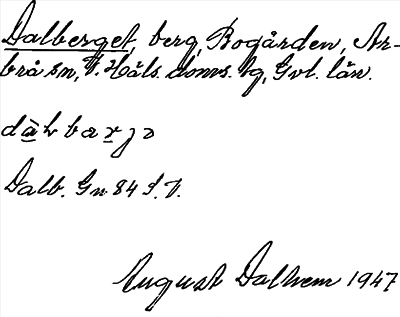 Dalberget, berg, Bogården, Ar-
brå sn, V. Häls. doms. tg, Gvl. län.
Dalb. Gn 84 S.V.
August Dalhem 1947